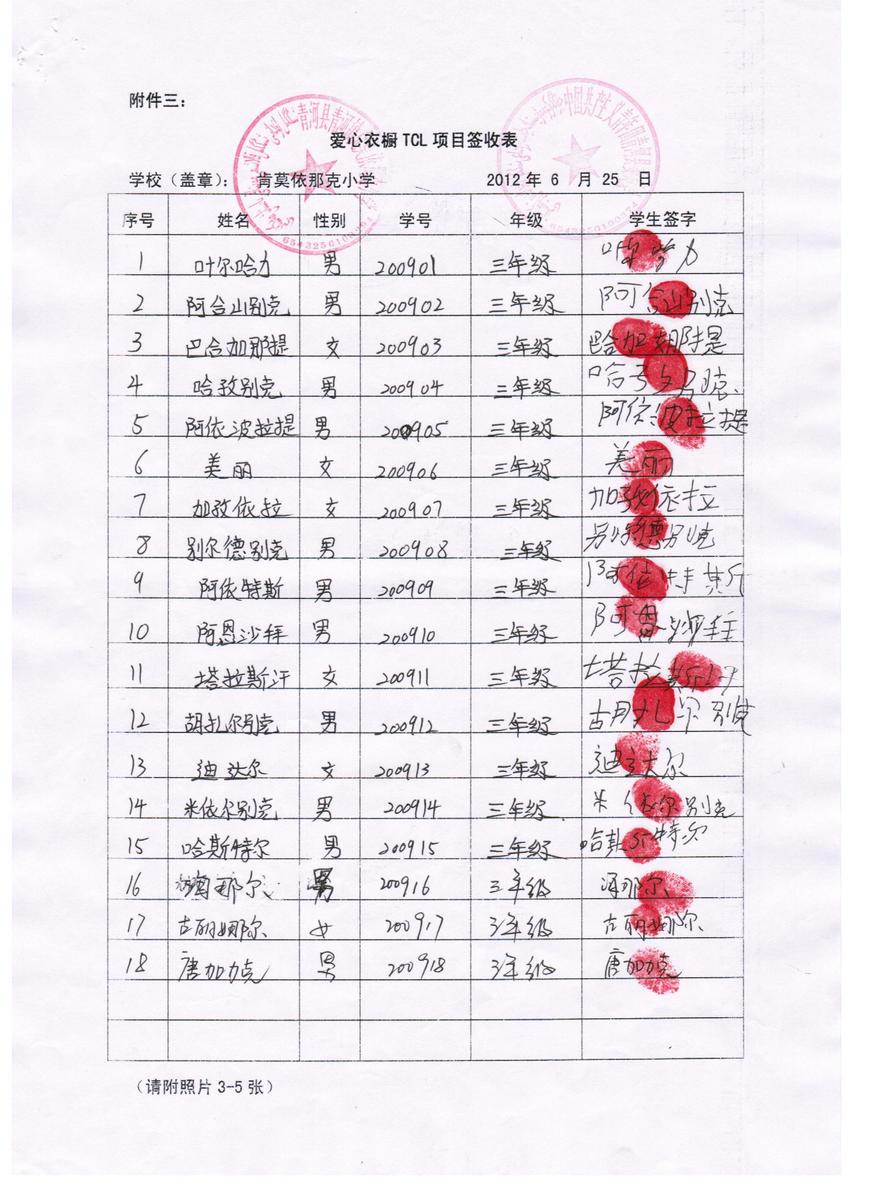 附件三：
爱心衣橱 TCL 项目签收表
学校（盖章）： 肯莫依那克小学 2012 年 6 月 25 日
序号 姓名 性别 学号 年级 学生签字
1 叶尔哈力 男 200901 三年级
2 阿合山别克 男 200902 三年级 阿合山别克
3 巴合加那提 女 200903 三年级 巴哈加那提
4 哈孜别克 男 200904 三年级
5 阿依波拉提 男 200905 三年级 阿依波拉提
6 美丽 女 200906 三年级 美丽
7 加孜依拉 女 200907 三年级 加孜依拉
8 别尔德别克 男 200908 三年级 别尔德别克
9 阿依特斯 男 200909 三年级 阿依特斯
10 阿恩沙拜 男 200910 三年级
11 塔拉斯汗 女 200911 三年级 塔拉斯汗
12 胡扎尔别克 男 200912 三年级 胡扎尔别克
13 迪达尔 女 200913 三年级 迪达尔
14 米依尔别克 男 200914 三年级 米依尔别克
15 哈斯特尔 男 200915 三年级 哈斯特尔
16 男 200916 三年级
17 古丽娜尔 女 200917 3年级 古丽娜尔
18 唐加力克 男 200918 3年级 唐加力克
（请附照片 3-5 张）